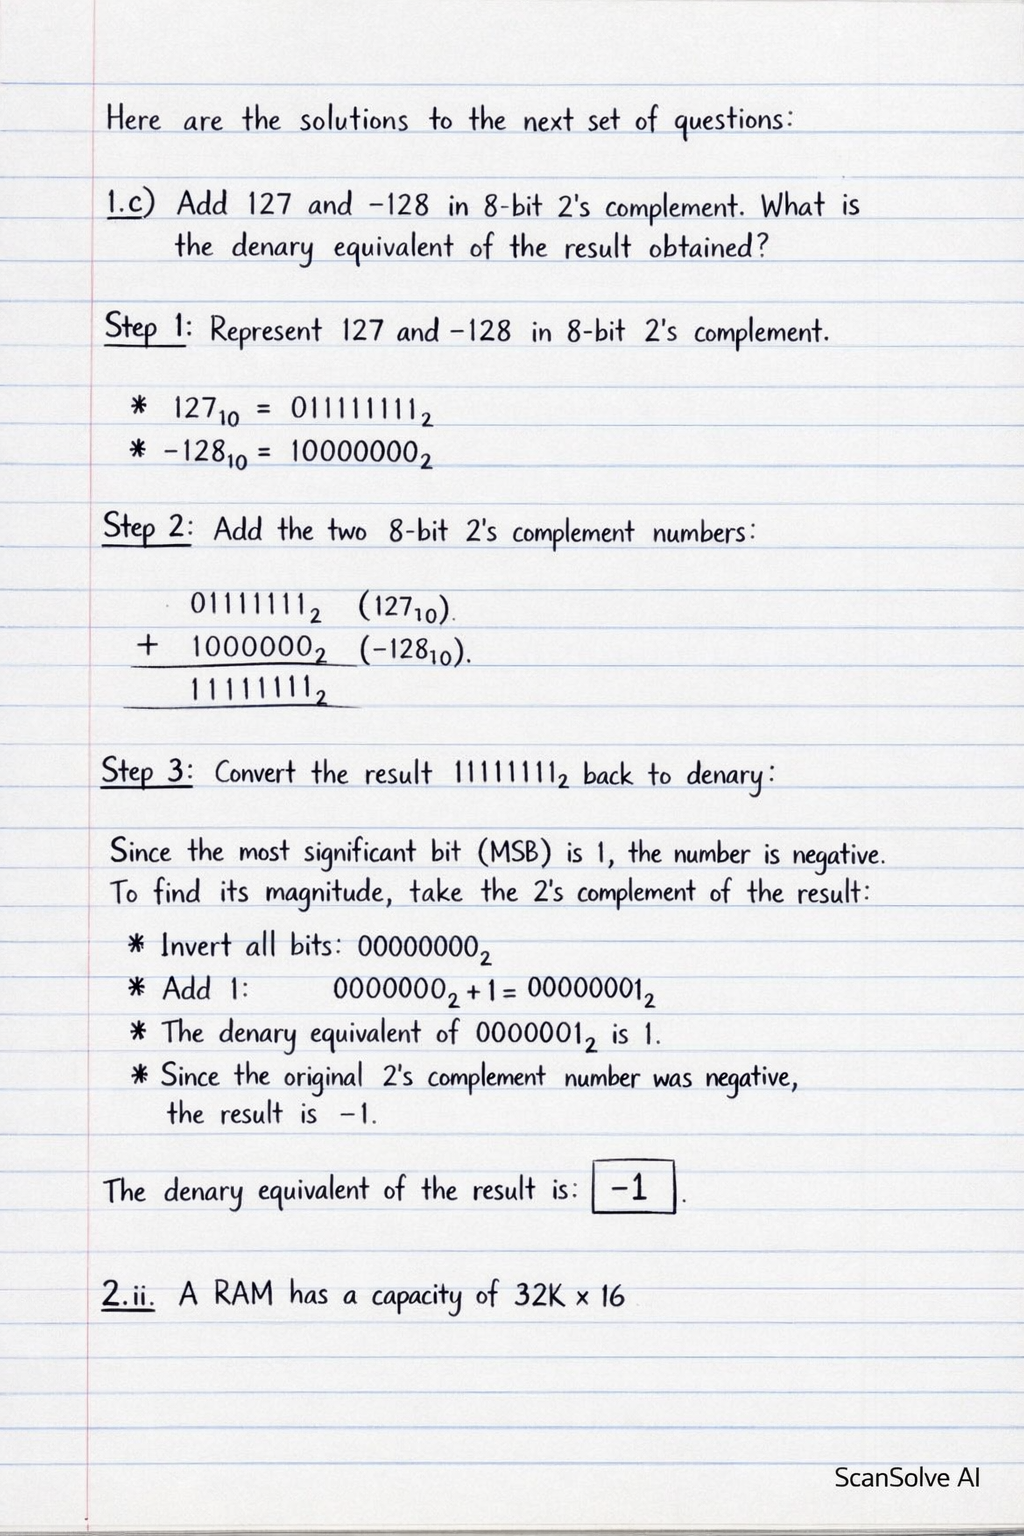 Here are the solutions to the next set of questions:
1.c) Add 127 and -128 in 8-bit 2's complement. What is
the denary equivalent of the result obtained?
Step 1: Represent 127 and -128 in 8-bit 2's complement.
* 127₁₀ = 011111111₂
* -128₁₀ = 10000000₂
Step 2: Add the two 8-bit 2's complement numbers:
01111111₂ (127₁₀).
+ 1000000₂ (-128₁₀).
11111111₂
Step 3: Convert the result 11111111₂ back to denary:
Since the most significant bit (MSB) is 1, the number is negative.
To find its magnitude, take the 2's complement of the result:
* Invert all bits: 00000000₂
* Add 1: 0000000₂ + 1 = 00000001₂
* The denary equivalent of 0000001₂ is 1.
* Since the original 2's complement number was negative,
the result is -1.
The denary equivalent of the result is: -1.
2.ii. A RAM has a capacity of 32K × 16
ScanSolve AI